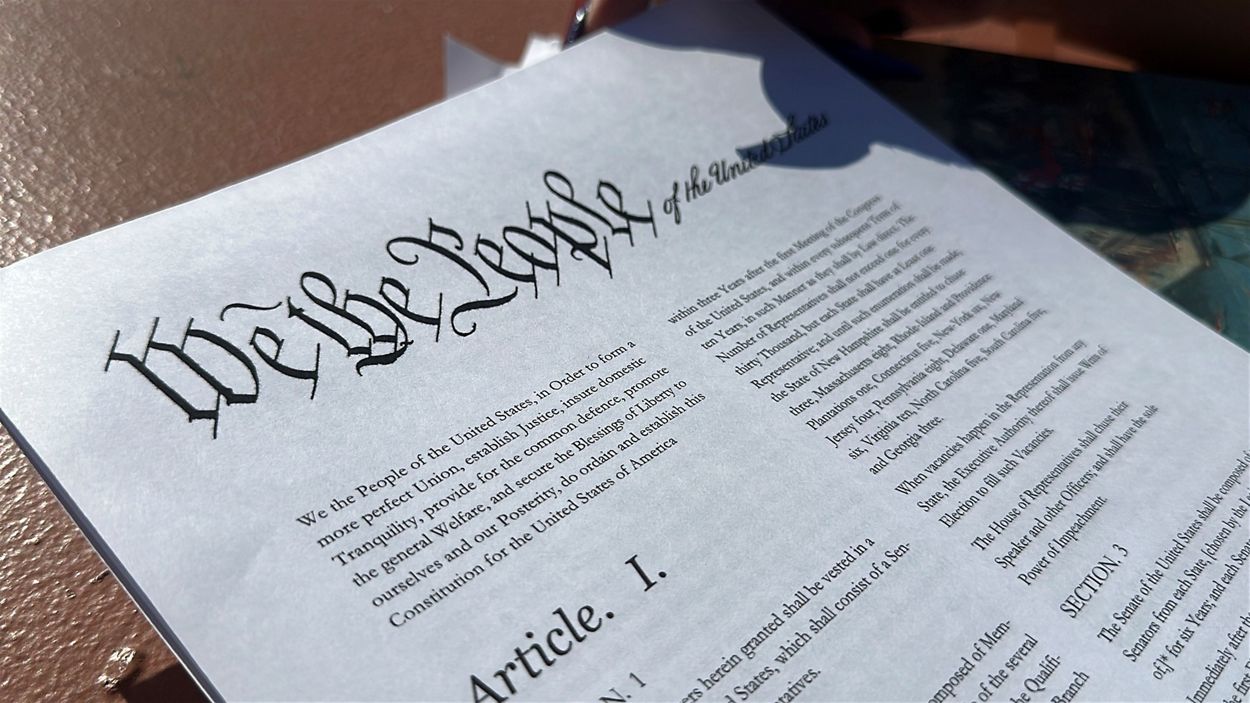 We the People of the United States
We the People of the United States, in Order to form a
more perfect Union, establish Justice, insure domestic
Tranquility, provide for the common defence, promote
the general Welfare, and secure the Blessings of Liberty to
ourselves and our Posterity, do ordain and establish this
Constitution for the United States of America
Article. I.
N. 1
ers herein granted shall be vested in a
d States, which shall consist of a Sen-
tatives.
omposed of Mem-
of the several
he Qualifi-
Branch
within three Years after the first Meeting of the Congress
of the United States, and within every subsequent Term of
ten Years, in such Manner as they shall by Law direct. The
Number of Representatives shall not exceed one for every
thirty Thousand, but each State shall have at Least one
Representative; and until such enumeration shall be made,
the State of New Hampshire shall be entitled to chuse
three, Massachusetts eight, Rhode-Island and Providence
Plantations one, Connecticut five, New-York six, New
Jersey four, Pennsylvania eight, Delaware one, Maryland
six, Virginia ten, North Carolina five, South Carolina five,
and Georgia three.
When vacancies happen in the Representation from any
State, the Executive Authority thereof shall issue Writs of
Election to fill such Vacancies.
The House of Representatives shall chuse their
Speaker and other Officers; and shall have the sole
Power of Impeachment.
SECTION. 3
The Senate of the United States shall be composed of
Senators from each State, [chosen by the
of,]* for six Years; and each Sena
Immediately after th
the first